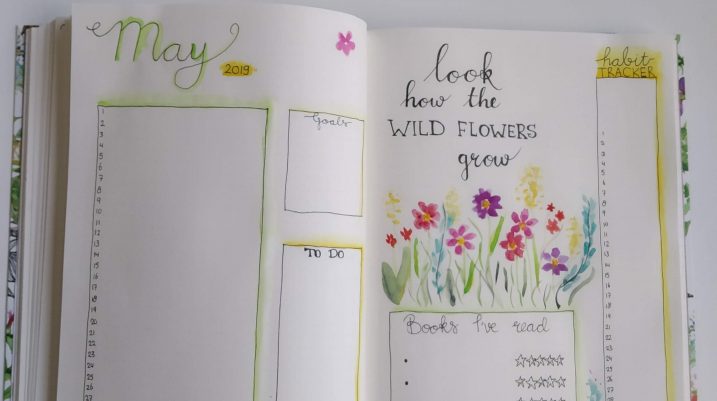 May
2019
1
2
3
4
5
6
7
8
9
10
11
12
13
14
15
16
17
18
19
20
21
22
23
24
25
26
27
Goals
TO DO
look
how the
WILD FLOWERS
grow
Books I've read
habit
TRACKER
1
2
3
4
5
6
7
8
9
10
11
12
13
14
15
16
17
18
19
20
21
22
23
24
25